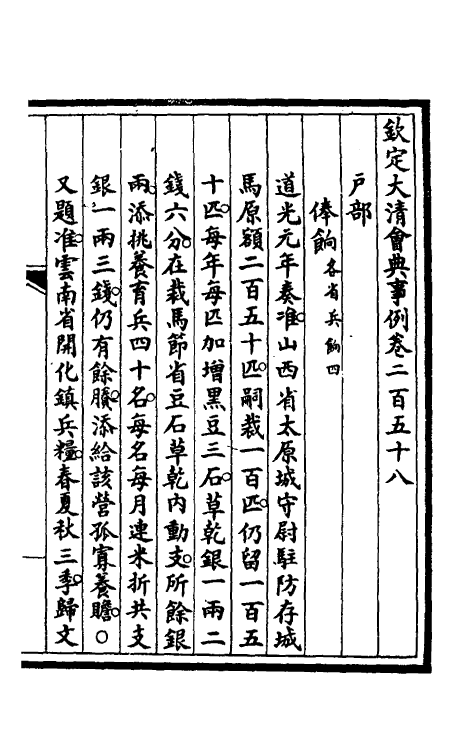 欽定大清會典事例卷二百五十八
戶部
俸餉各省兵餉四
道光元年奏准山西省太原城守尉駐防存城
馬原額二百五十匹嗣裁一百匹仍留一百五
十匹每年每匹加增黑豆三石草乾銀一兩二
錢六分在裁馬節省豆石草乾內動支所餘銀
兩添挑養育兵四十名每名每月連米折共支
銀一兩三錢仍有餘賸添給該營孤寡養贍○
又題准雲南省開化鎮兵糧春夏秋三季歸文